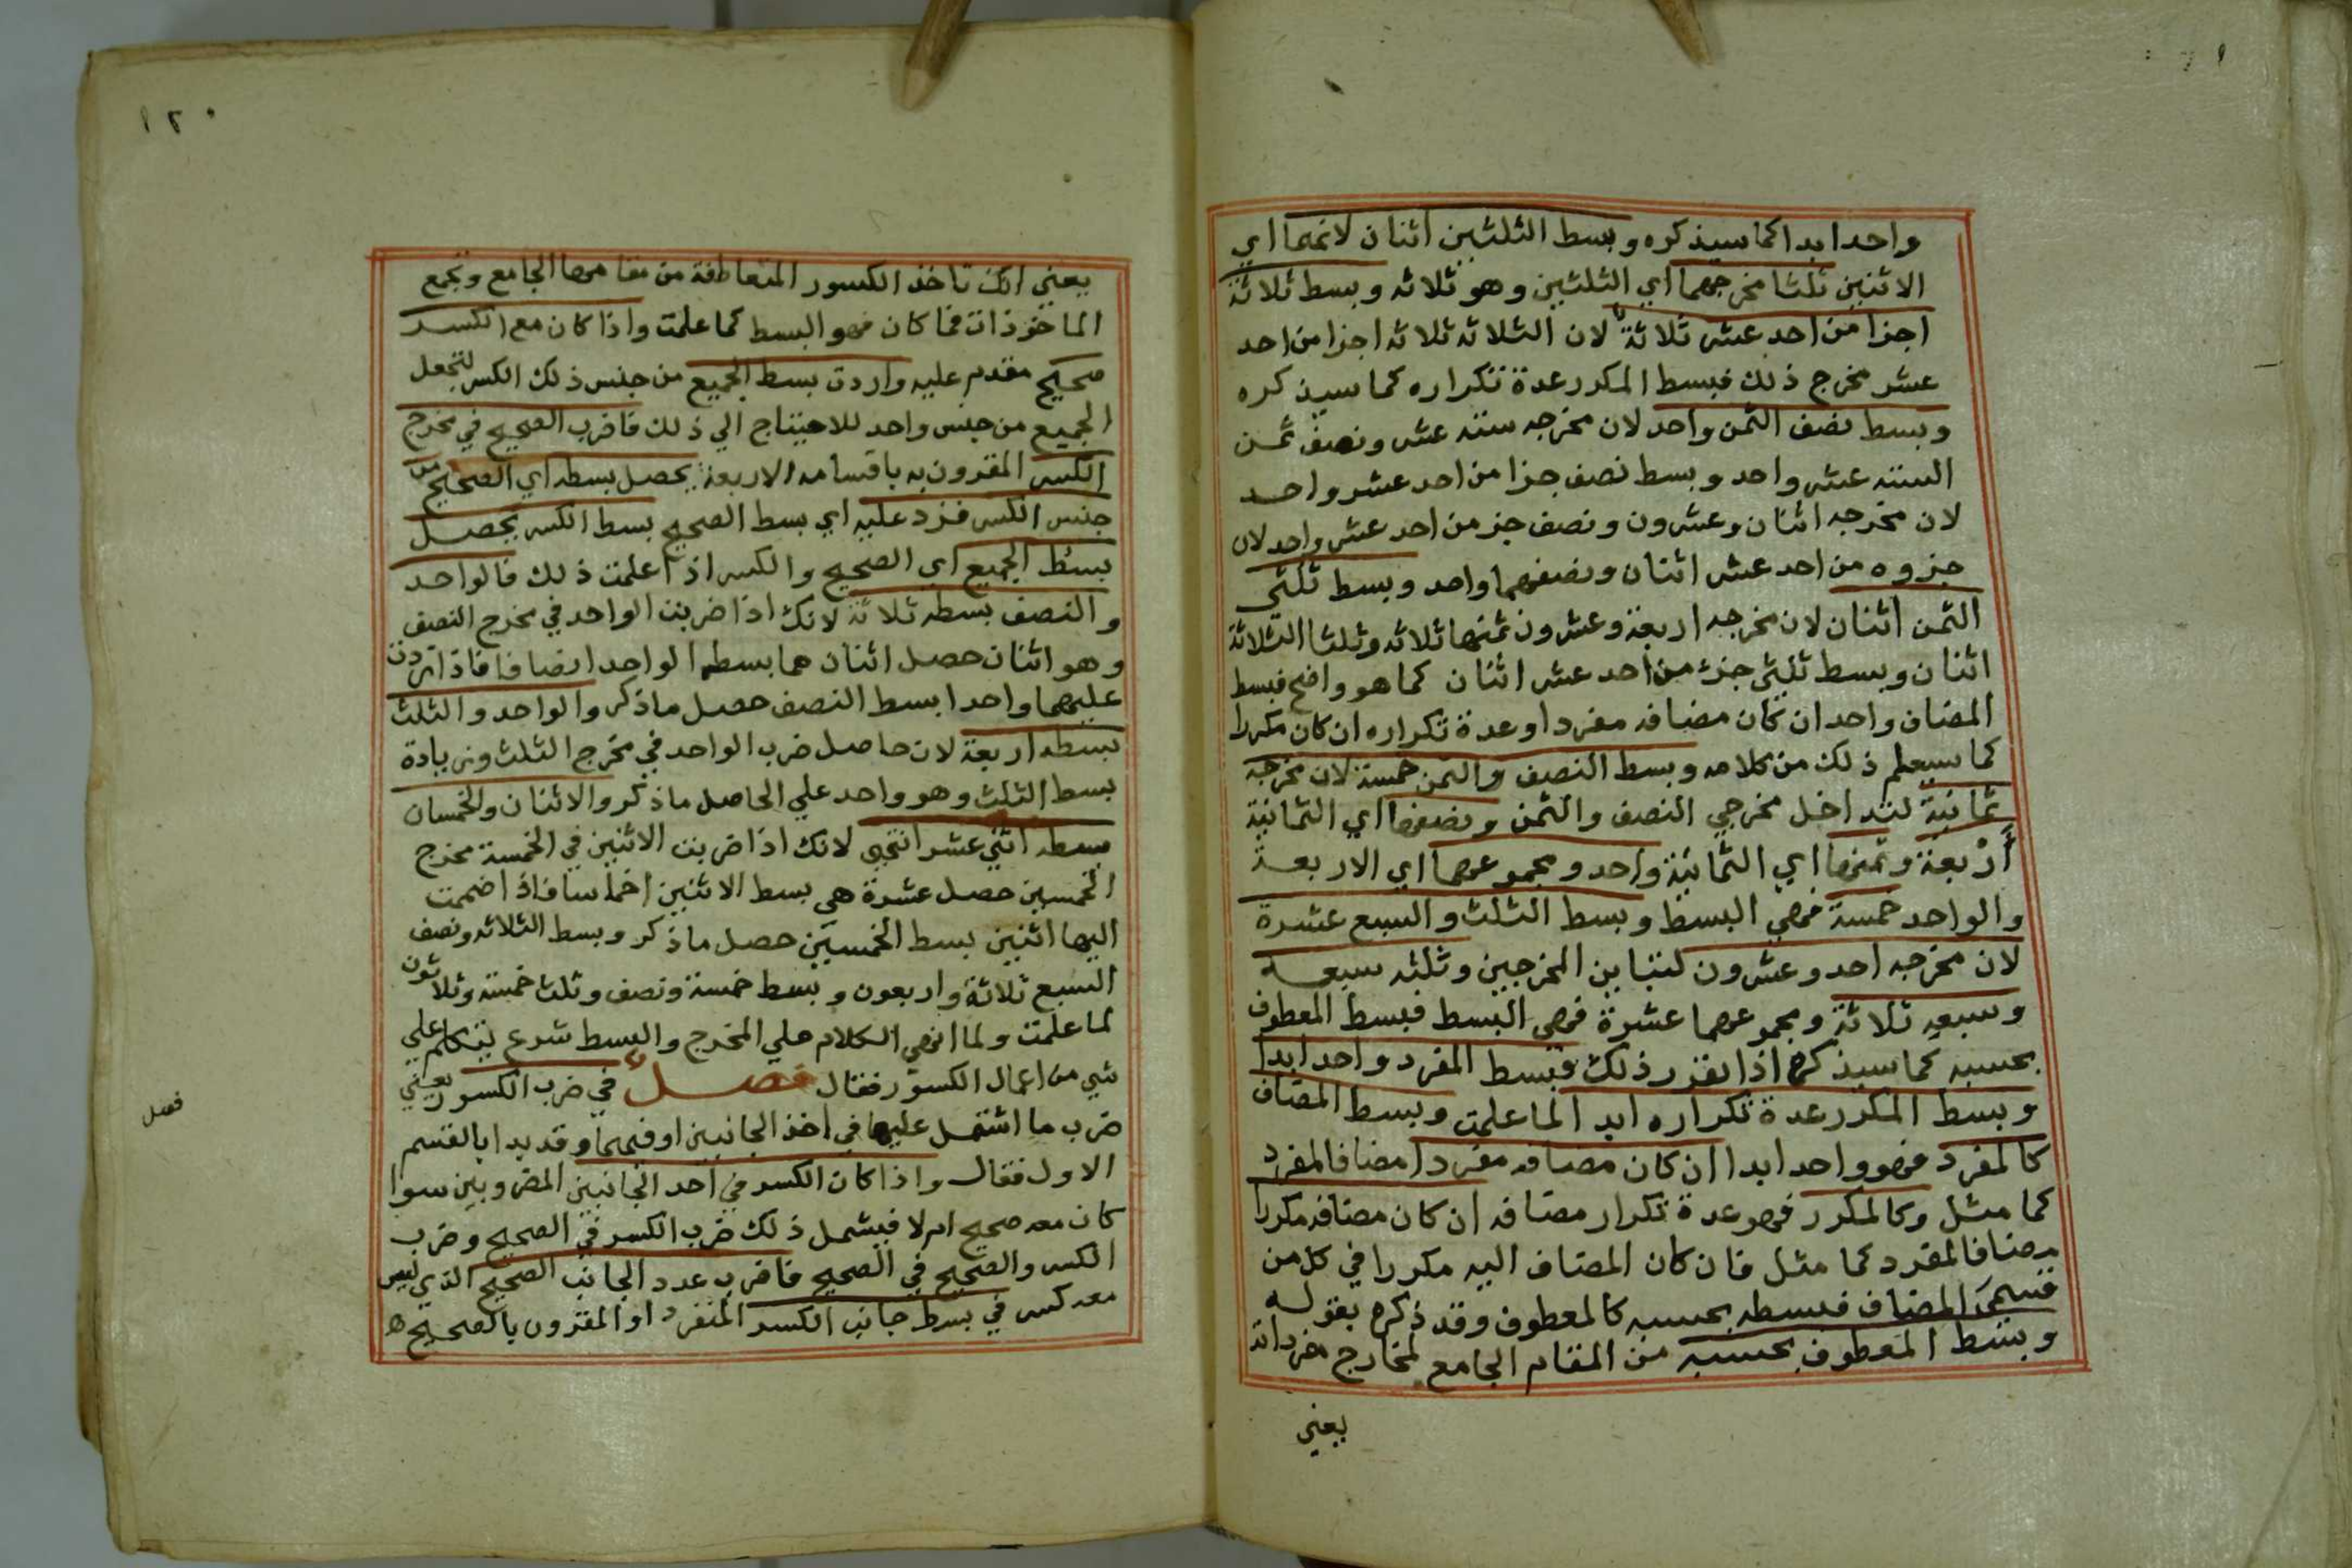 واحد ابدا كما سيذكره وبسط الثلثين اثنان لانهما اي
الاثنين ثلثا مخرجهما اي الثلثين وهو ثلاثه وبسط ثلاثة
اجزا من احد عشر ثلاثة لان الثلاثه ثلاثه اجزا من احد
عشر مخرج ذلك فبسط المكرر عدة تكراره كما سيذكره
وبسط نصف الثمن واحد لان مخرجه سته عشر ونصف ثمن
الستة عشر واحد وبسط نصف جزا من احد عشر واحد
لان مخرجه اثنان وعشرون ونصف جز من احد عشر واحد لان
جزوه من احد عشر اثنان ونصفهما واحد وبسط ثلثي
الثمن اثنان لان مخرجه اربعة وعشرون ثمنها ثلاثه وثلثا الثلاثة
اثنان وبسط ثلثي جزء من احد عشر اثنان كما هو واضح فبسط
المضاف واحد ان كان مضافه مفردا وعدة تكراره ان كان مكررا
كما سيعلم ذلك من كلامه وبسط النصف والثمن خمسة لان مخرجه
ثمانية لتداخل مخرجي النصف والثمن ونصفها اي الثمانية
أرْبعة وثمنها اي الثمانية واحد ومجموعهما اي الاربعة
والواحد خمسة فهي البسط وبسط الثلث والسبع عشرة
لان مخرجه احد وعشرون لتباين المخرجين وثلثه سبعه
وسبعه ثلاثة ومجموعهما عشرة فهي البسط فبسط المعطوف
بحسبه كما سيذكره اذا تقرر ذلك فبسط المفرد واحد ابدا
وبسط المكرر عدة تكراره ابدا لما علمت وبسط المضاف
كالمفرد فهو واحد ابدا ان كان مضافه مفردا مضافا لمفرد
كما مثل وكالمكرر فهو عدة تكرار مضافه ان كان مضافه مكررا
مضافا لمفرد كما مثل فان كان المضاف اليه مكررا في كل من
قسمي المضاف فبسطه بحسبه كالمعطوف وقد ذكره بقوله
وبسط المعطوف بحسبه من المقام الجامع لمخارج مفرداته
يعني
١٢٠
يعني انك تاخذ الكسور المتعاطفة من مقامها الجامع وتجمع
الماخوذات فما كان فهو البسط كما علمت واذا كان مع الكسر
صحيح مقدم عليه واردت بسط الجميع من جنس ذلك الكسر لتجعل
الجميع من جنس واحد للاحتياج الي ذلك فاضرب الصحيح في مخرج
الكسر المقرون به باقسامه الاربعة يحصل بسطه اي الصحيح من
جنس الكسر فزد عليه اي بسط الصحيح بسط الكسر يحصل
بسط الجميع اي الصحيح والكسر اذا علمت ذلك فالواحد
والنصف بسطه ثلاثة لانك اذا ضربت الواحد في مخرج النصف
وهو اثنان حصل اثنان هما بسط الواحد انصافا فاذا زدت
عليهما واحدا بسط النصف حصل ما ذكر والواحد والثلث
بسطه اربعة لان حاصل ضرب الواحد في مخرج الثلث وزيادة
بسط الثلث وهو واحد علي الحاصل ما ذكر والاثنان والخمسان
بسطه اثني عشر انتهى لانك اذا ضربت الاثنين في الخمسة مخرج
الخمسين حصل عشرة هي بسط الاثنين اخماسا فاذا ضممت
اليها اثنين بسط الخمسين حصل ما ذكر وبسط الثلاثه ونصف
السبع ثلاثة واربعون وبسط خمسة ونصف وثلث خمسة وثلاثون
لما علمت ولما انهي الكلام علي المخرج والبسط شرع يتكلم علي
شي من اعمال الكسور فقال فصل في ضرب الكسور يعني
ضرب ما اشتمل عليها في احد الجانبين او فيهما وقد بدا بالقسم
فصل
الاول فقال واذا كان الكسر في احد الجانبين المضروبين سوا
كان معه صحيح ام لا فيشمل ذلك ضرب الكسر في الصحيح وضرب
الكسر والصحيح في الصحيح فاضرب عدد الجانب الصحيح الذي ليس
معه كسر في بسط جانب الكسر المنفرد او المقرون بالصحيح